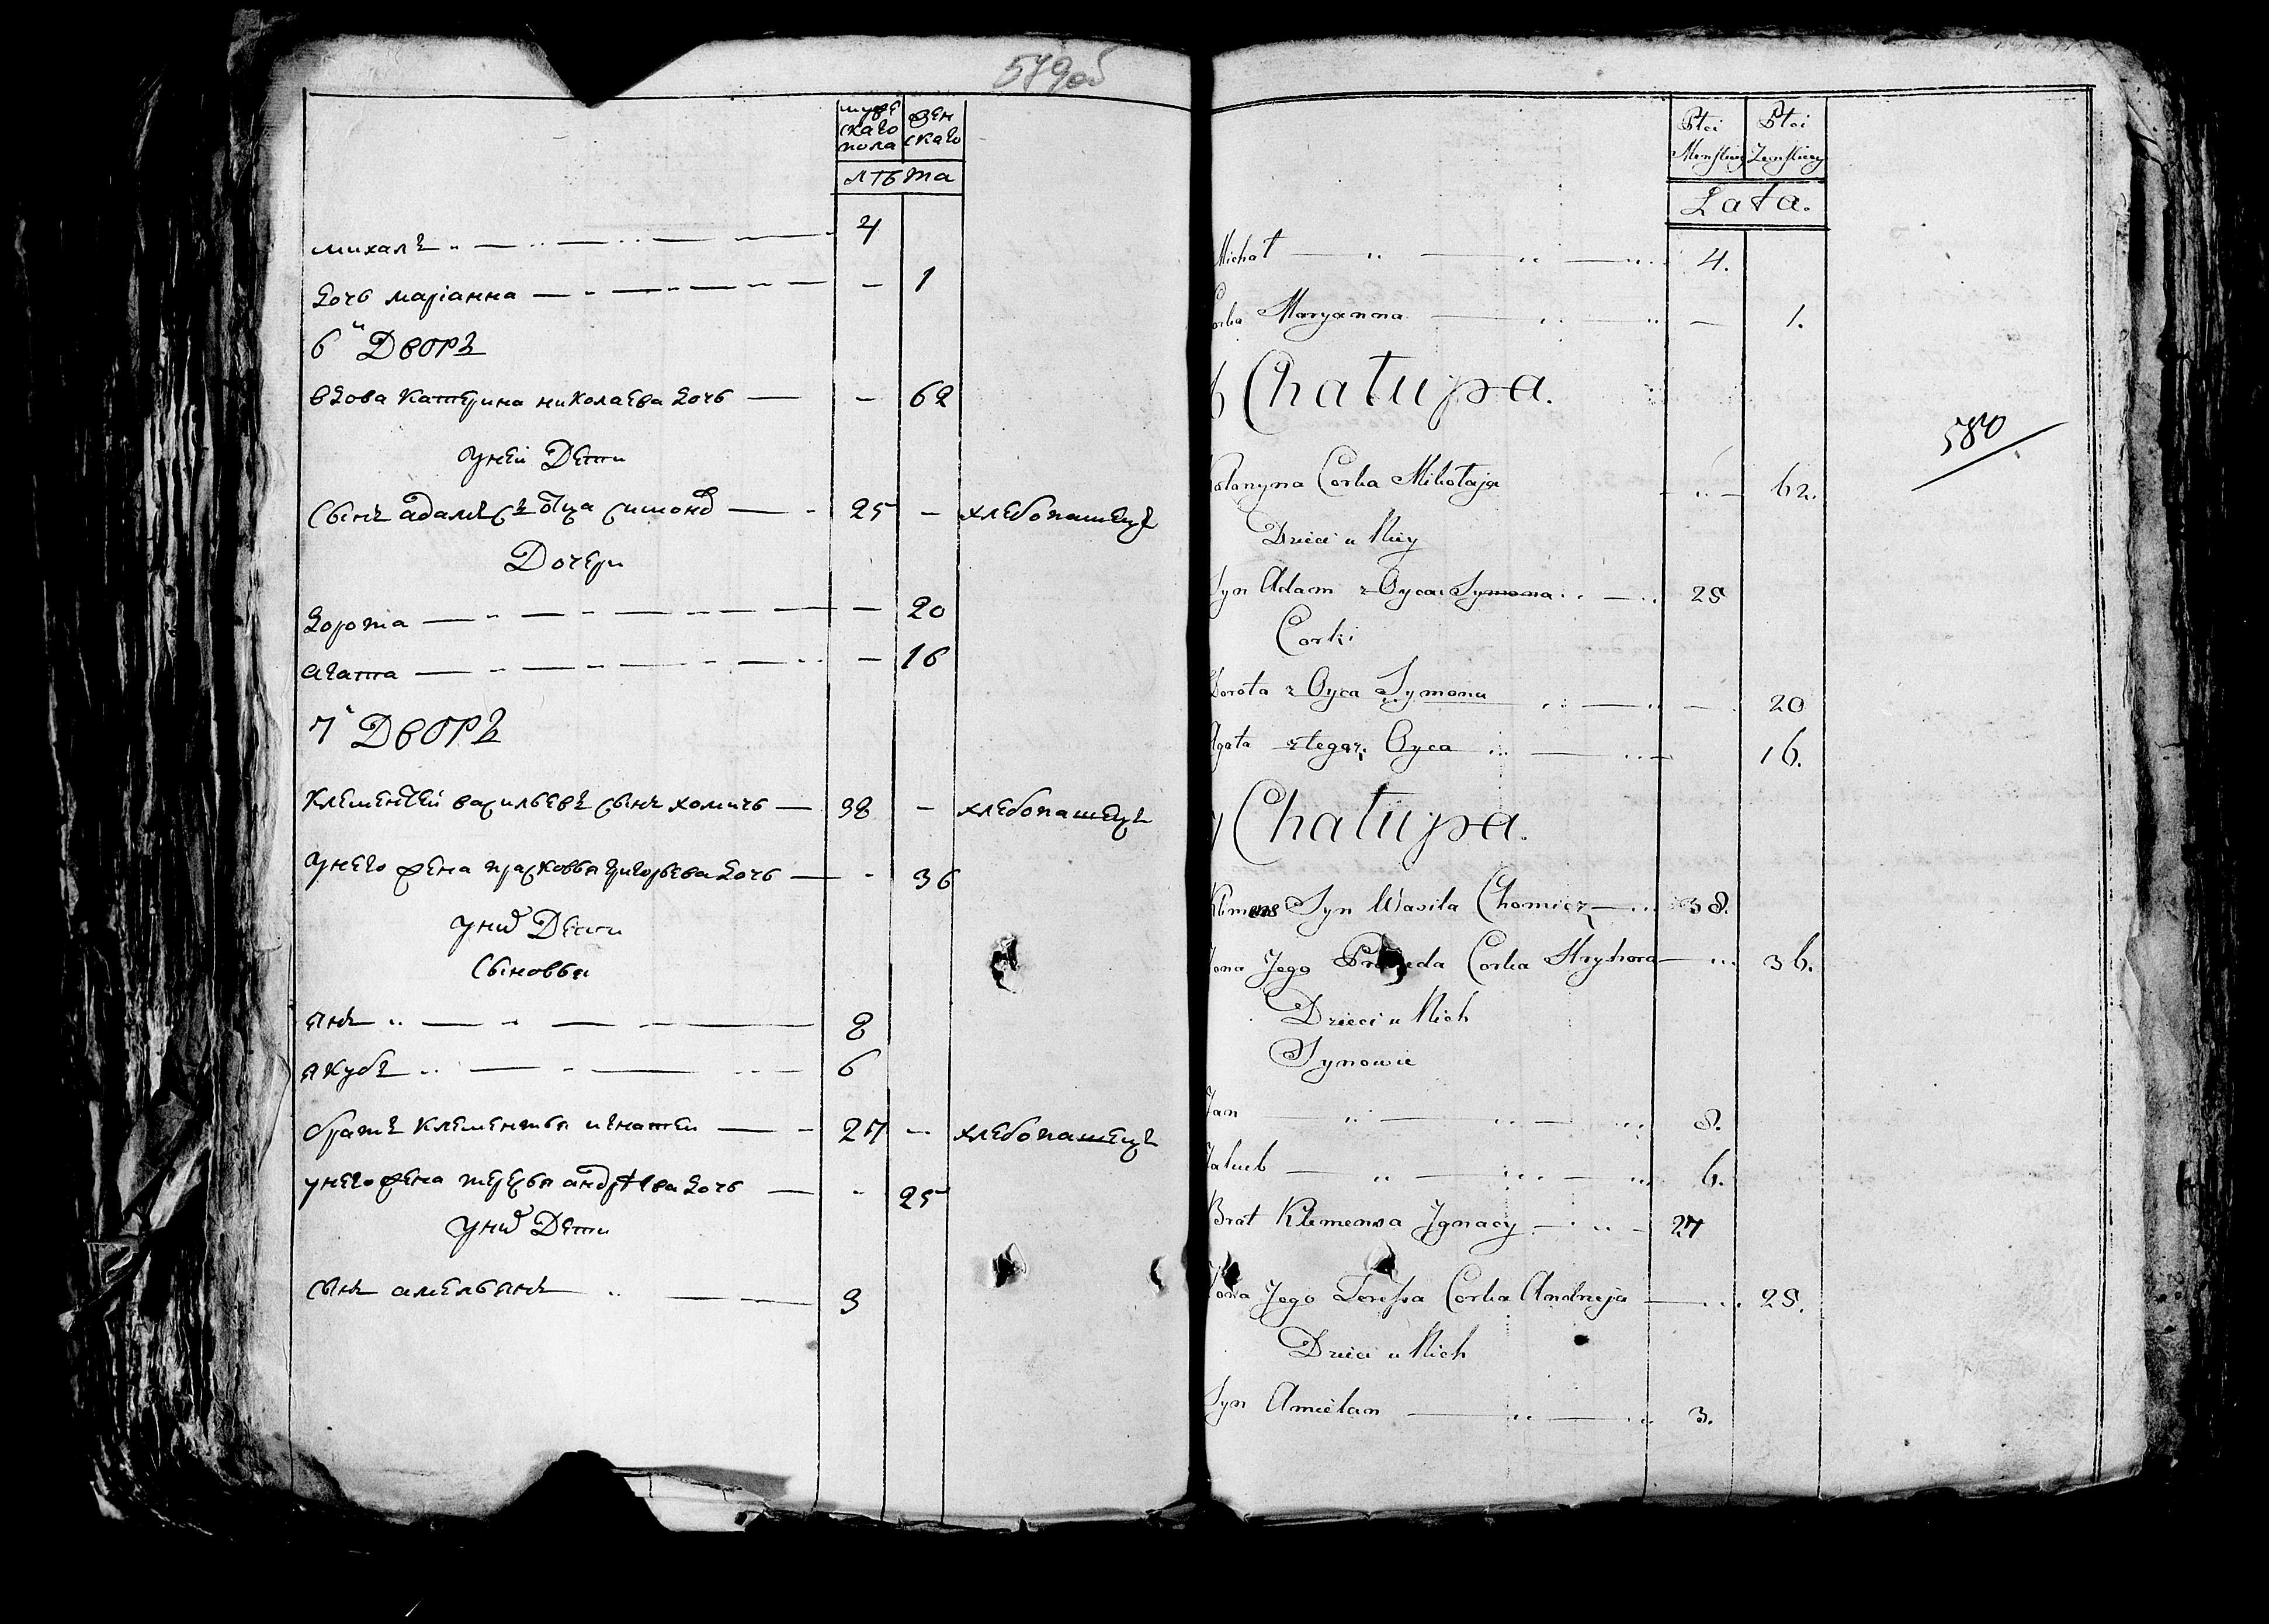 579об
мужескаго пола женскаго
лѣта
михалъ 4
дочь маріанна - 1
6й Дворъ
вдова Катерина николаева дочь - 62
у ней Дети
сынъ адамъ съ отца симона 25 - хлебопашецъ
Дочери
дорота - 20
агата - 16
7й Дворъ
Клементей васильевъ сынъ хомичь 38 - хлебопашецъ
у него жена прасковья григорьева дочь - 36
у них Дети
сыновья
янъ 8
якубъ 6
братъ клементья игнатей 27 - хлебопашецъ
у него жена тересья андрѣева дочь - 25
у них Дети
сынъ амельянъ 3
Płci Męskiey Płci Żenskiey
Lata.
Michał 4.
Corka Maryanna - 1.
6 Chałupa.
580
Katarzyna Corka Mikołaja - 62.
Dzieci u Niey
Syn Adam z Oyca Symona 25
Corki
Dorota z Oyca Symona - 20
Agata z tegoż Oyca 16.
7 Chałupa.
Klimens Syn Wasila Chomicz 38.
Żona Jego Corka Hryhora 36.
Dzieci u Nich
Synowie
Jan 8.
Jakub 6.
Brat Klemensa Jgnacy 27
Żona Jego Teressa Corka Andrzeja 25.
Dzieci u Nich
Syn Amielan 3.